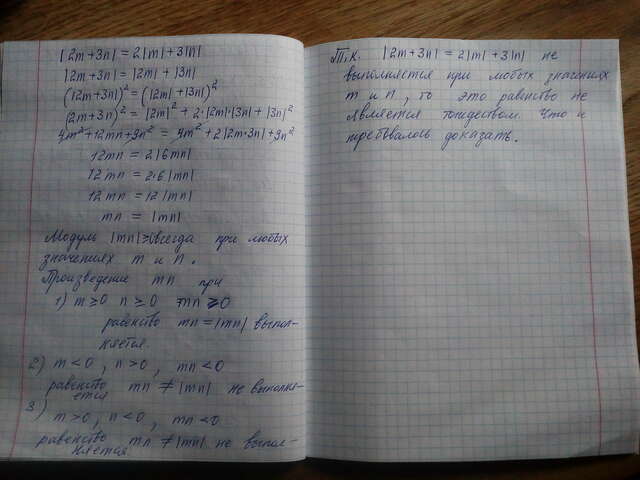 |2m+3n| = 2|m| + 3|n|
|2m+3n| = |2m| + |3n|
(|2m+3n|)² = (|2m| + |3n|)²
(2m+3n)² = |2m|² + 2·|2m|·|3n| + |3n|²
4m²+12mn+9n² = 4m²+2|2m·3n|+9n²
12mn = 2|6mn|
12mn = 2·6|mn|
12mn = 12|mn|
mn = |mn|
Модуль |mn|≥0 всегда при любых
значениях m и n.
Произведение mn при
1) m≥0 n≥0 mn≥0
равенство mn=|mn| выпол-
няется.
2) m<0, n>0, mn<0
равенство mn ≠ |mn| не выполня-
ется
3)
m>0, n<0, mn<0
равенство mn ≠ |mn| не выпол-
няется
Т.к. |2m+3n| = 2|m| + 3|n| не
выполняется при любых значениях
m и n, то это равенство не
является тождеством. Что и
требовалось доказать.